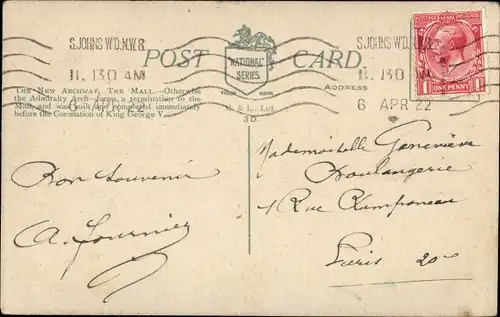 S.JOHNS WD.N.W.8.
11.130 AM
POST CARD.
NATIONAL SERIES
S.JOHNS WD.N.W.8.
11.130 AM
6 APR 22
POSTAGE REVENUE
ONE PENNY
1 1
ADDRESS
THE NEW ARCHWAY, THE MALL.—Otherwise
the Admiralty Arch—forms a termination to the
Mall, and was built and completed immediately
before the Coronation of King George V.
M. & L., Ltd.
3D.
Mademoiselle Geneviève
Boulangerie
1 Rue Ramponeau
Paris 20e
Bon Souvenir
A. Fournier